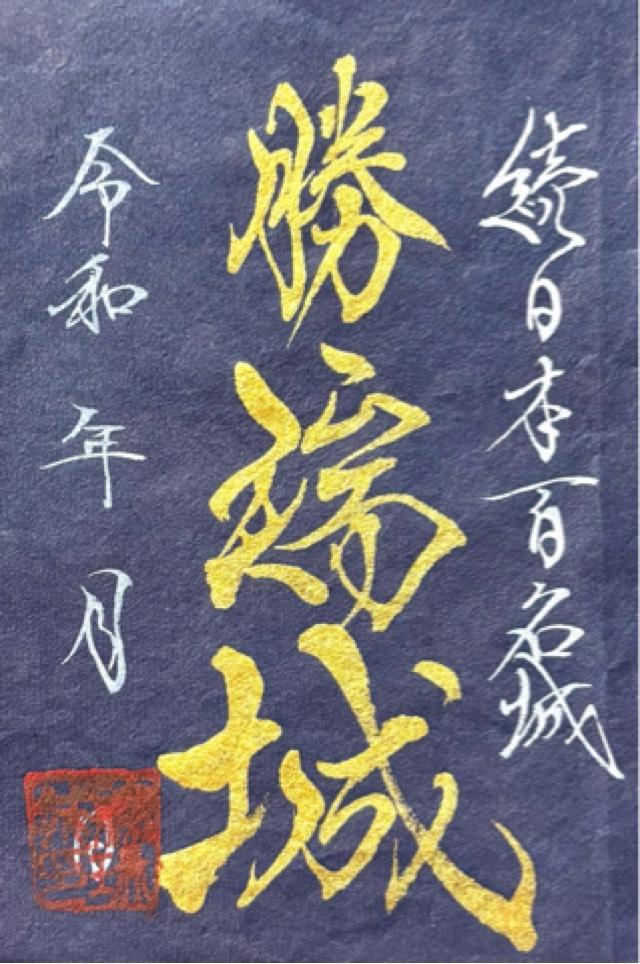 続日本百名城
勝瑞城
令和 年 月
日